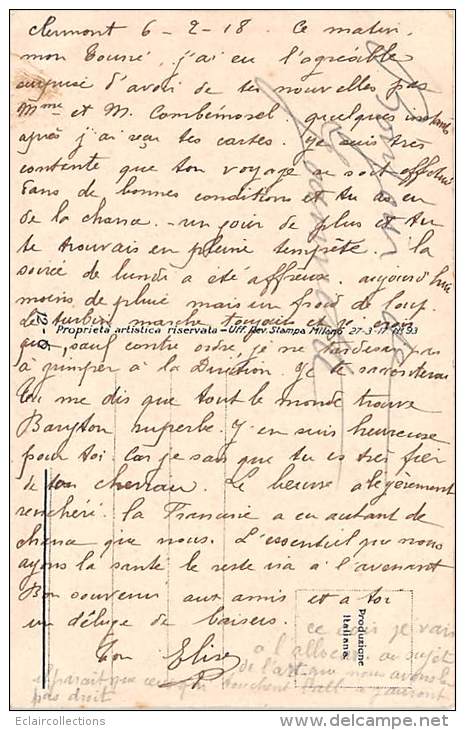 Clermont 6-2-18. Ce matin,
mon Tounié, j'ai eu l'agréable
surprise d'avoir de tes nouvelles par
Mme et M. Combémorel. quelques instants
après j'ai reçu tes cartes. Je suis très
contente que ton voyage se soit effectué
dans de bonnes conditions et tu as eu
de la chance. un jour de plus et tu
te trouvais en pleine tempête. la
soirée de lundi a été affreuse. aujourd'hui
moins de pluie mais un froid de loup.
Le turbin marche toujours et
Proprieta artistica riservata - Uff. Rev. Stampa Milano 27-3-17 N 93
sauf contre ordre, je ne tarderai pas
à grimper à la Division. Je te raconterai
Tu me dis que tout le monde trouve
Baryton superbe. J'en suis heureuse
pour toi car je sais que tu es très fier
de ton cheval. Le beurre a légèrement
renchéri. la Francine a eu autant de
chance que nous. L'essentiel que nous
ayons la santé le reste va à l'avenant
Bon souvenir aux amis et à toi
un déluge de baisers.
ton Elise
Produzione
Italiana
ce soir je vais
à l'album au sujet
de l'art que nous avons la
il parait que ceux qui touchent l'all. n'auront
pas droit
Eclaircollections